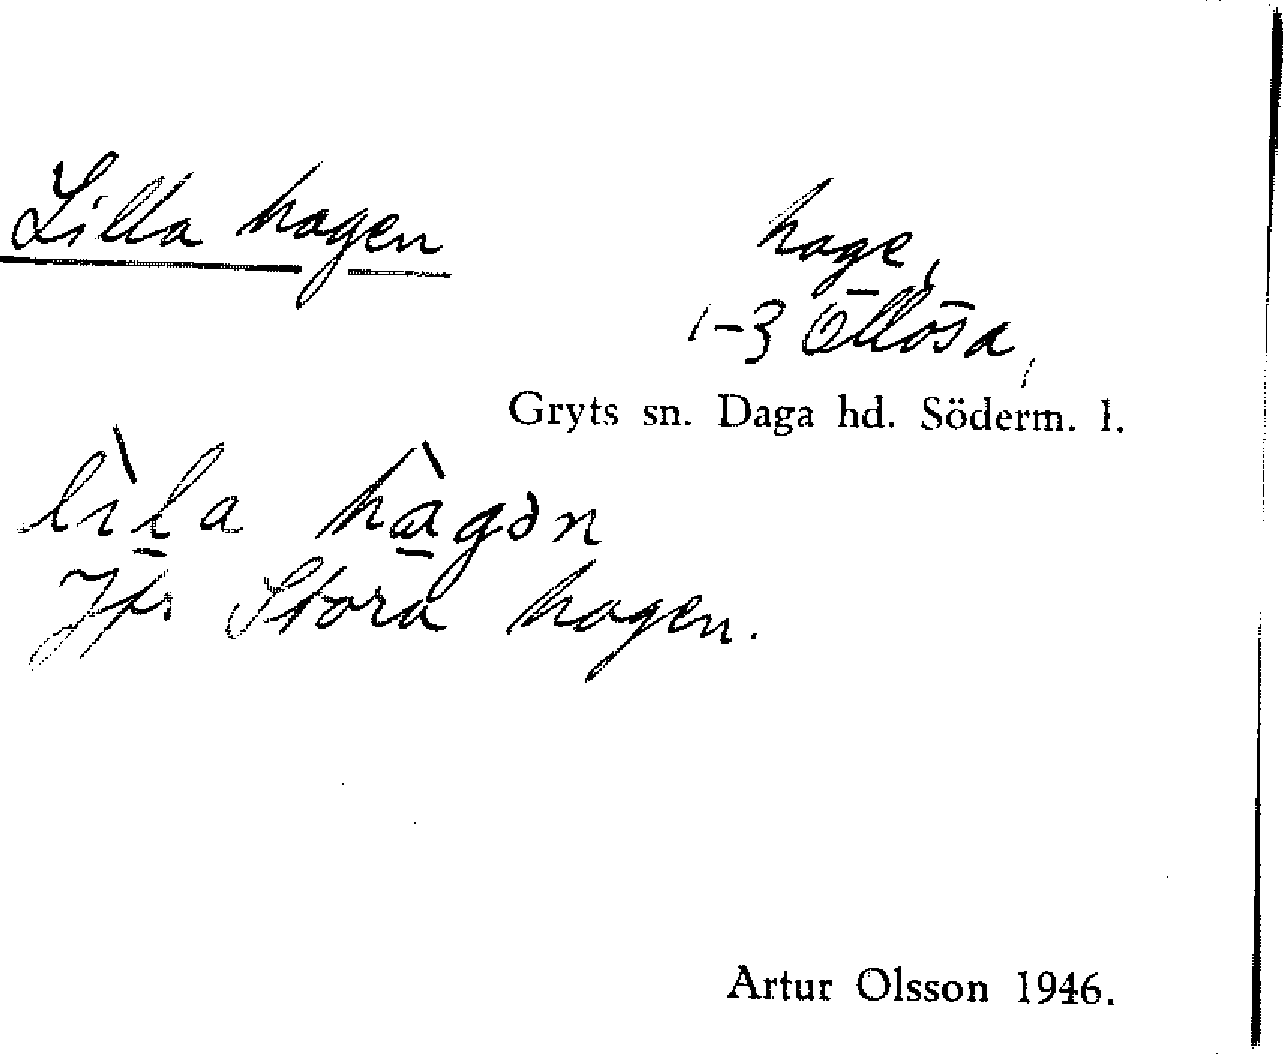 Lilla hagen
hage,
1-3 Öllösa,
Gryts sn. Daga hd. Söderm. l.
lìl̠a hàgən
Jfr Stora hagen.
Artur Olsson 1946.